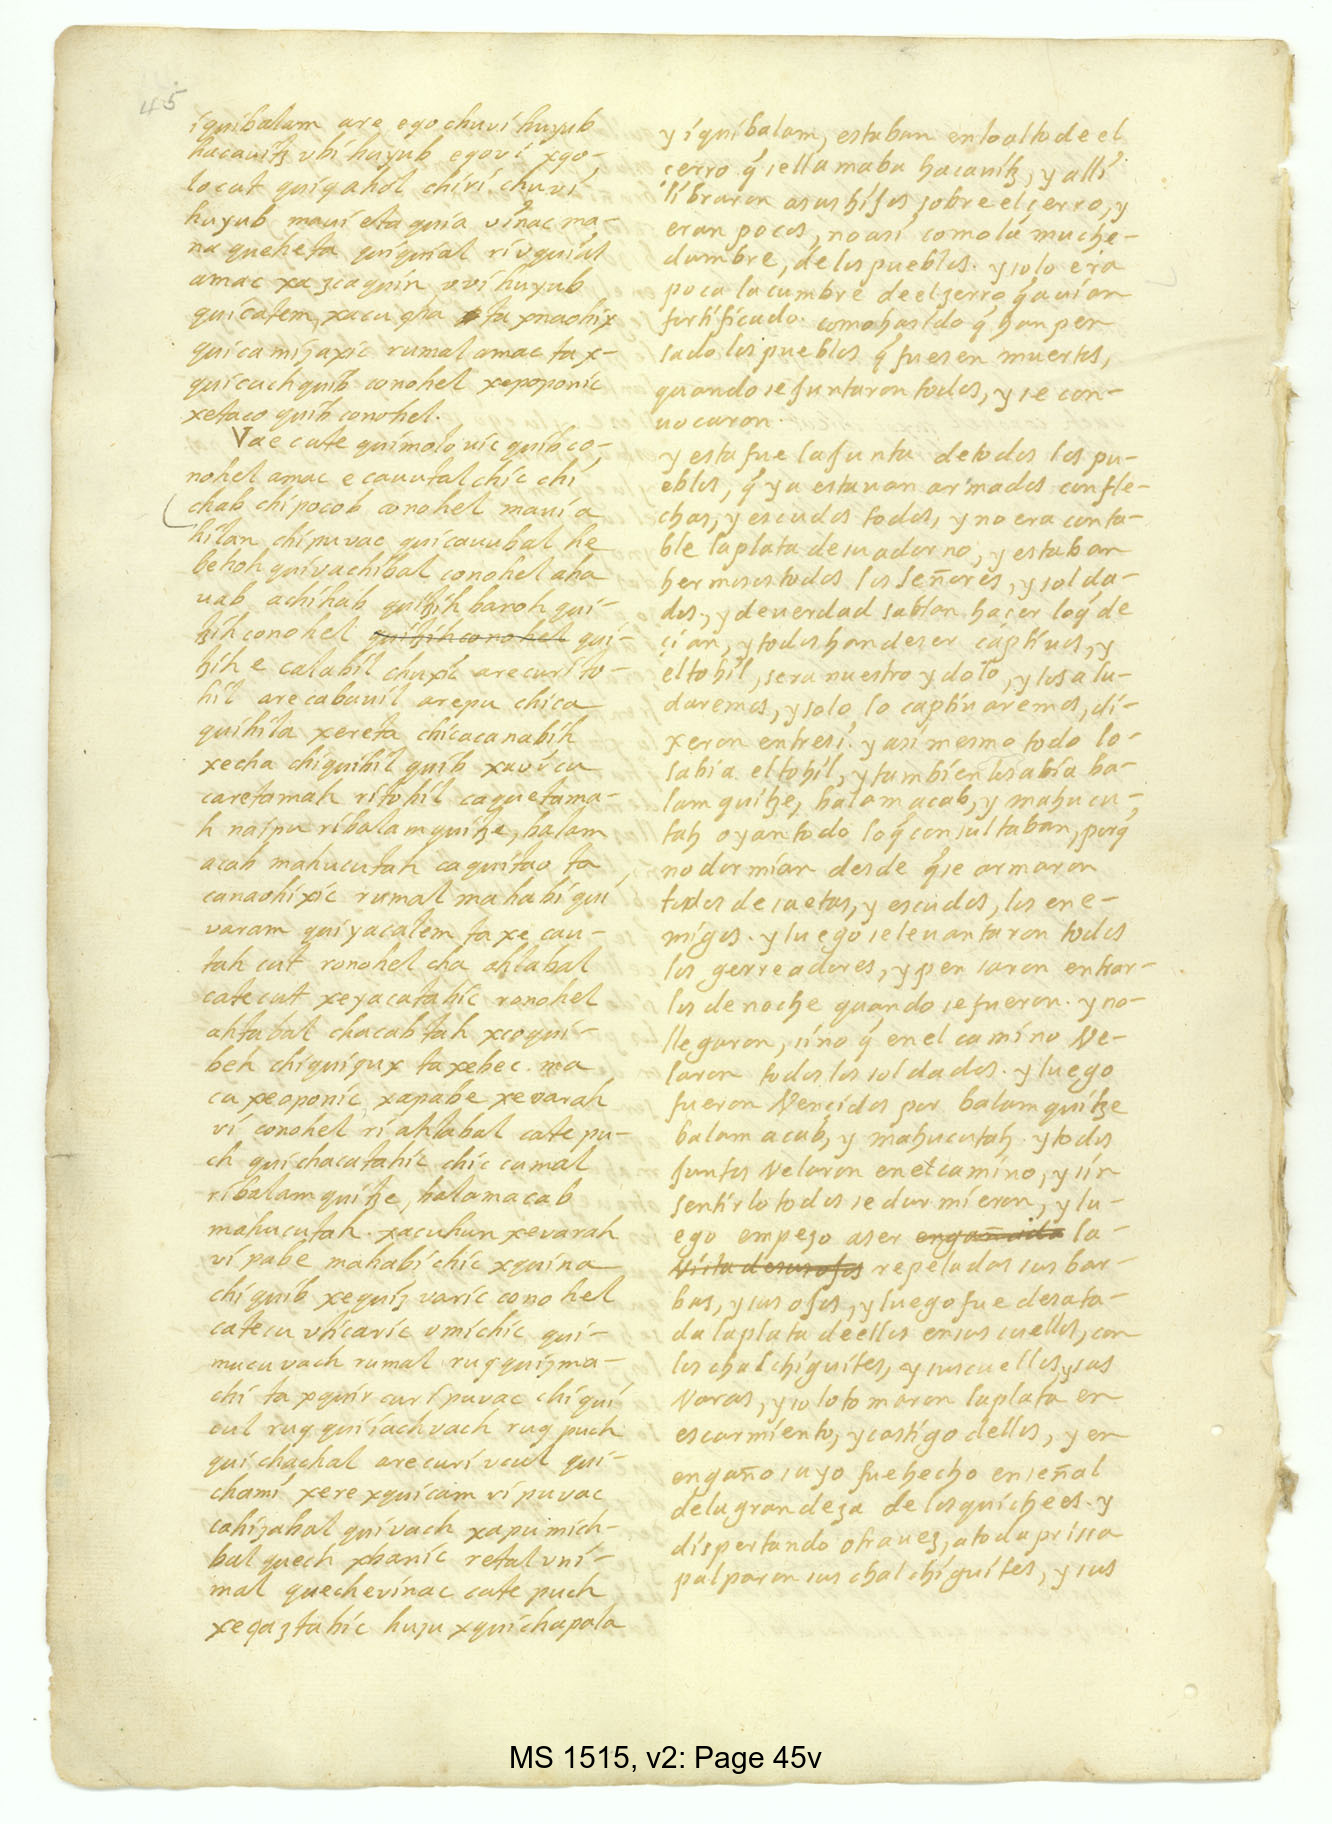 45
iquibalam are egochuvi huyub
hacauitz vbi huyub egovi xqo-
locat quiqahol chiri chuvi
huyub maui eta quia vinac ma-
na queheta quiquial rivquial
amac xa zcaquin vvi huyub
quicatem, xacu qha ta xnaohix
quicamizaxic rumal amac tax-
quicuch quib conohel xepoponic
xetaco quib conohel.
Vae cute quimolo uic quib co-
nohel amac e cauutal chic chi
chab chi pocob conohel maui a
hilan chi puvac quicauubal he
behoh quivachibal conohel aha
uab achihab quitzih banoh qui-
tzih conohel quitzih conohel qui-
tzih e calabil chuxic arecuri to-
hil are cabauil arepu chica
quihila xereta chicacanabih
xecha chiquibil quib xauicu
caretamah ri tohil caquetama-
h naipu ri balamquitze, balam
acab mahucutah caquitao ta
canaohixic rumal mahabi qui
varam quiyacatem ta xe cau-
tah cut ronohel cha ahlabal
catecut xeyacatahic ronohel
ahlabal chacabtah xcoqui-
beh chiquiqux ta xebec. ma
cu xeoponic xapabe xevarah
vi conohel ri ahlabal cate pu-
ch quichacatahic chic cumal
ri balam quitze, balamacab
mahucutah. xacuhun xevarah
vi pabe mahabi chic xquina
chiquib xequiz varic conohel
catecu vticaric vmichic qui-
mucuvach rumal ruq quizma-
chi ta xquir curi puvac chiqui
cul ruq quiiachvach ruq puch
quichachal arecuri vcul qui-
chami xere xquicam vi puvac
cahizabal quivach xapu mich-
bal quech xbanic retal vni-
mal quechevinac cate puch
xeqaztahic huzu xquichapala
y iquibalam, estaban enlo alto de el
cerro q̃ se llamaba hacauitz, y alli
libraron asus hijos sobre el cerro, y
eran pocos, no asi como la muche-
dumbre, de los pueblos. y solo era
poca la cumbre de el zerro q̃ auian
fortificado. como ha sido q̃ han pen
sado los pueblos q̃ fuesen muertos,
quando se juntaron todos, y se con-
uocaron.
y esta fue la junta de todos los pu-
eblos, q̃ ya estauan armados con fle-
chas, y escudos todos, y no era conta-
ble la plata de su adorno, y estaban
hermosos todos los señores, y solda-
dos, y de verdad sabian hacer loq̃ de
çian, y todos han de ser captiuos, y
el tohil, sera nuestro ydolo, y los alu-
daremos, y solo lo captiuaremos, di-
xeron entresi. y asi mesmo todo lo
sabia el tohil, y tambien losabia ba-
lam quitze, balam acab, y mahucu-
tah oyan todo loq̃ consultaban, porq̃
no dormian desde q̃ se armaron
todos de saetas, y escudos, los ene-
migos. y luego se leuantaron todos
los gerreadores, y pensaron entrar-
los de noche quando se fueron. y no-
llegaron, sino q̃ en el camino Ve-
laron todos los soldados. y luego
fueron Vençidos por balam quitze
balam acab, y mahucutah. y todos
juntos Velaron en el camino, y sin
sentirlo todos se durmieron, y lu-
ego empezo aser engañada la-
Vista de sus ojos repelados sus bar-
bas, y sus ojos, y luego fue desata-
da la plata de ellos en sus cuellos, con
los chalchiguites, y sus cuellos, y sus
Varas, y solo tomaron la plata en
escarmiento, y castigo dellos, y en
engaño suyo fue hecho en señal
de la grandeza de los quichees. y
dispertando otra uez, a toda prissa
palparon sus chalchiguites, y sus
MS 1515, v2: Page 45v